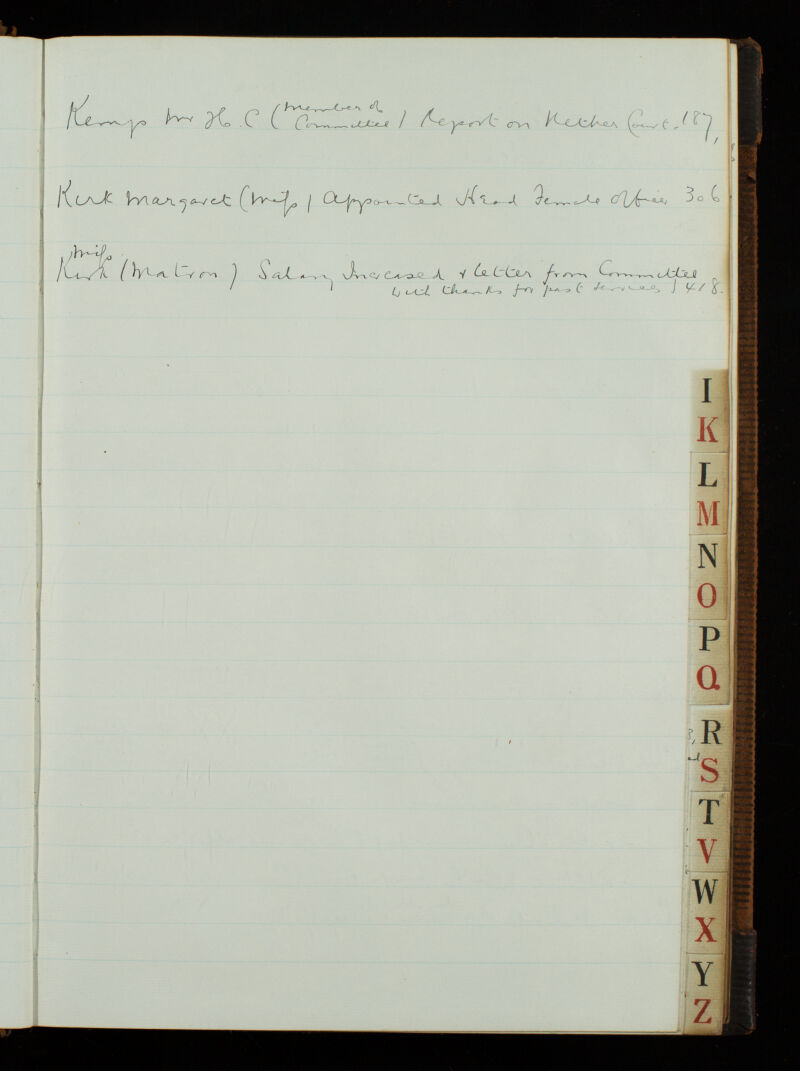 Kemp Mr H. C (Member of
Committee) Report on Nether Court. 187,
Kirk Margaret (Miss) Appointed Head Female Officer 306
Miss
Kirk (Matron) Salary Increased & letter from Committee
with thanks for past services } 418.
I
K
L
M
N
O
P
Q
R
S
T
V
W
X
Y
Z